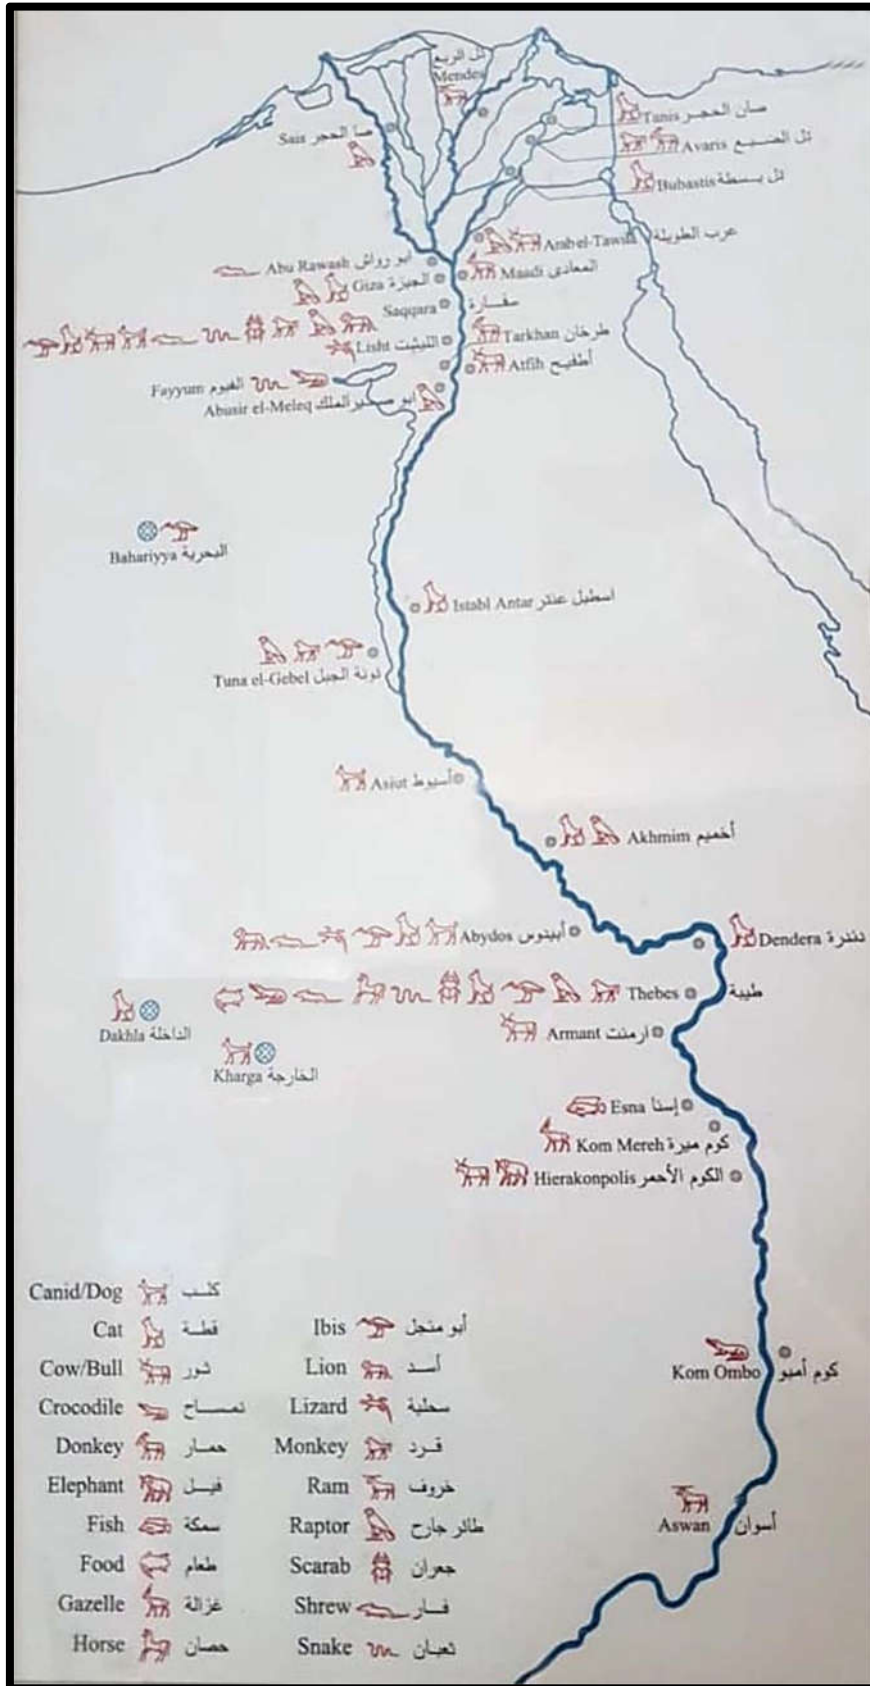 تل الربع
Mendes
Sais صا الحجر
Tanis صان الحجر
Avaris تل الضبع
Bubastis تل بسطة
Arab el-Tawila عرب الطويلة
Abu Rawash ابو رواش
Maadi المعادى
Giza الجيزة
Saqqara سقارة
Tarkhan طرخان
Lisht الليشت
Atfih أطفيح
Fayyum الفيوم
Abusir el-Meleq ابو صير الملك
Bahariyya البحرية
Istabl Antar اسطبل عنتر
Tuna el-Gebel تونة الجبل
Asiut أسيوط
Akhmim أخميم
Abydos أبيدوس
Dendera دندرة
Thebes طيبة
Dakhla الداخلة
Armant ارمنت
Kharga الخارجة
Esna إسنا
Kom Mereh كوم ميرة
Hierakonpolis الكوم الأحمر
Kom Ombo كوم أمبو
Aswan أسوان
Canid/Dog كلب
Cat قطة
Cow/Bull ثور
Crocodile تمساح
Donkey حمار
Elephant فيل
Fish سمكة
Food طعام
Gazelle غزالة
Horse حصان
Ibis أبو منجل
Lion أسد
Lizard سحلية
Monkey قرد
Ram خروف
Raptor طائر جارح
Scarab جعران
Shrew فار
Snake ثعبان